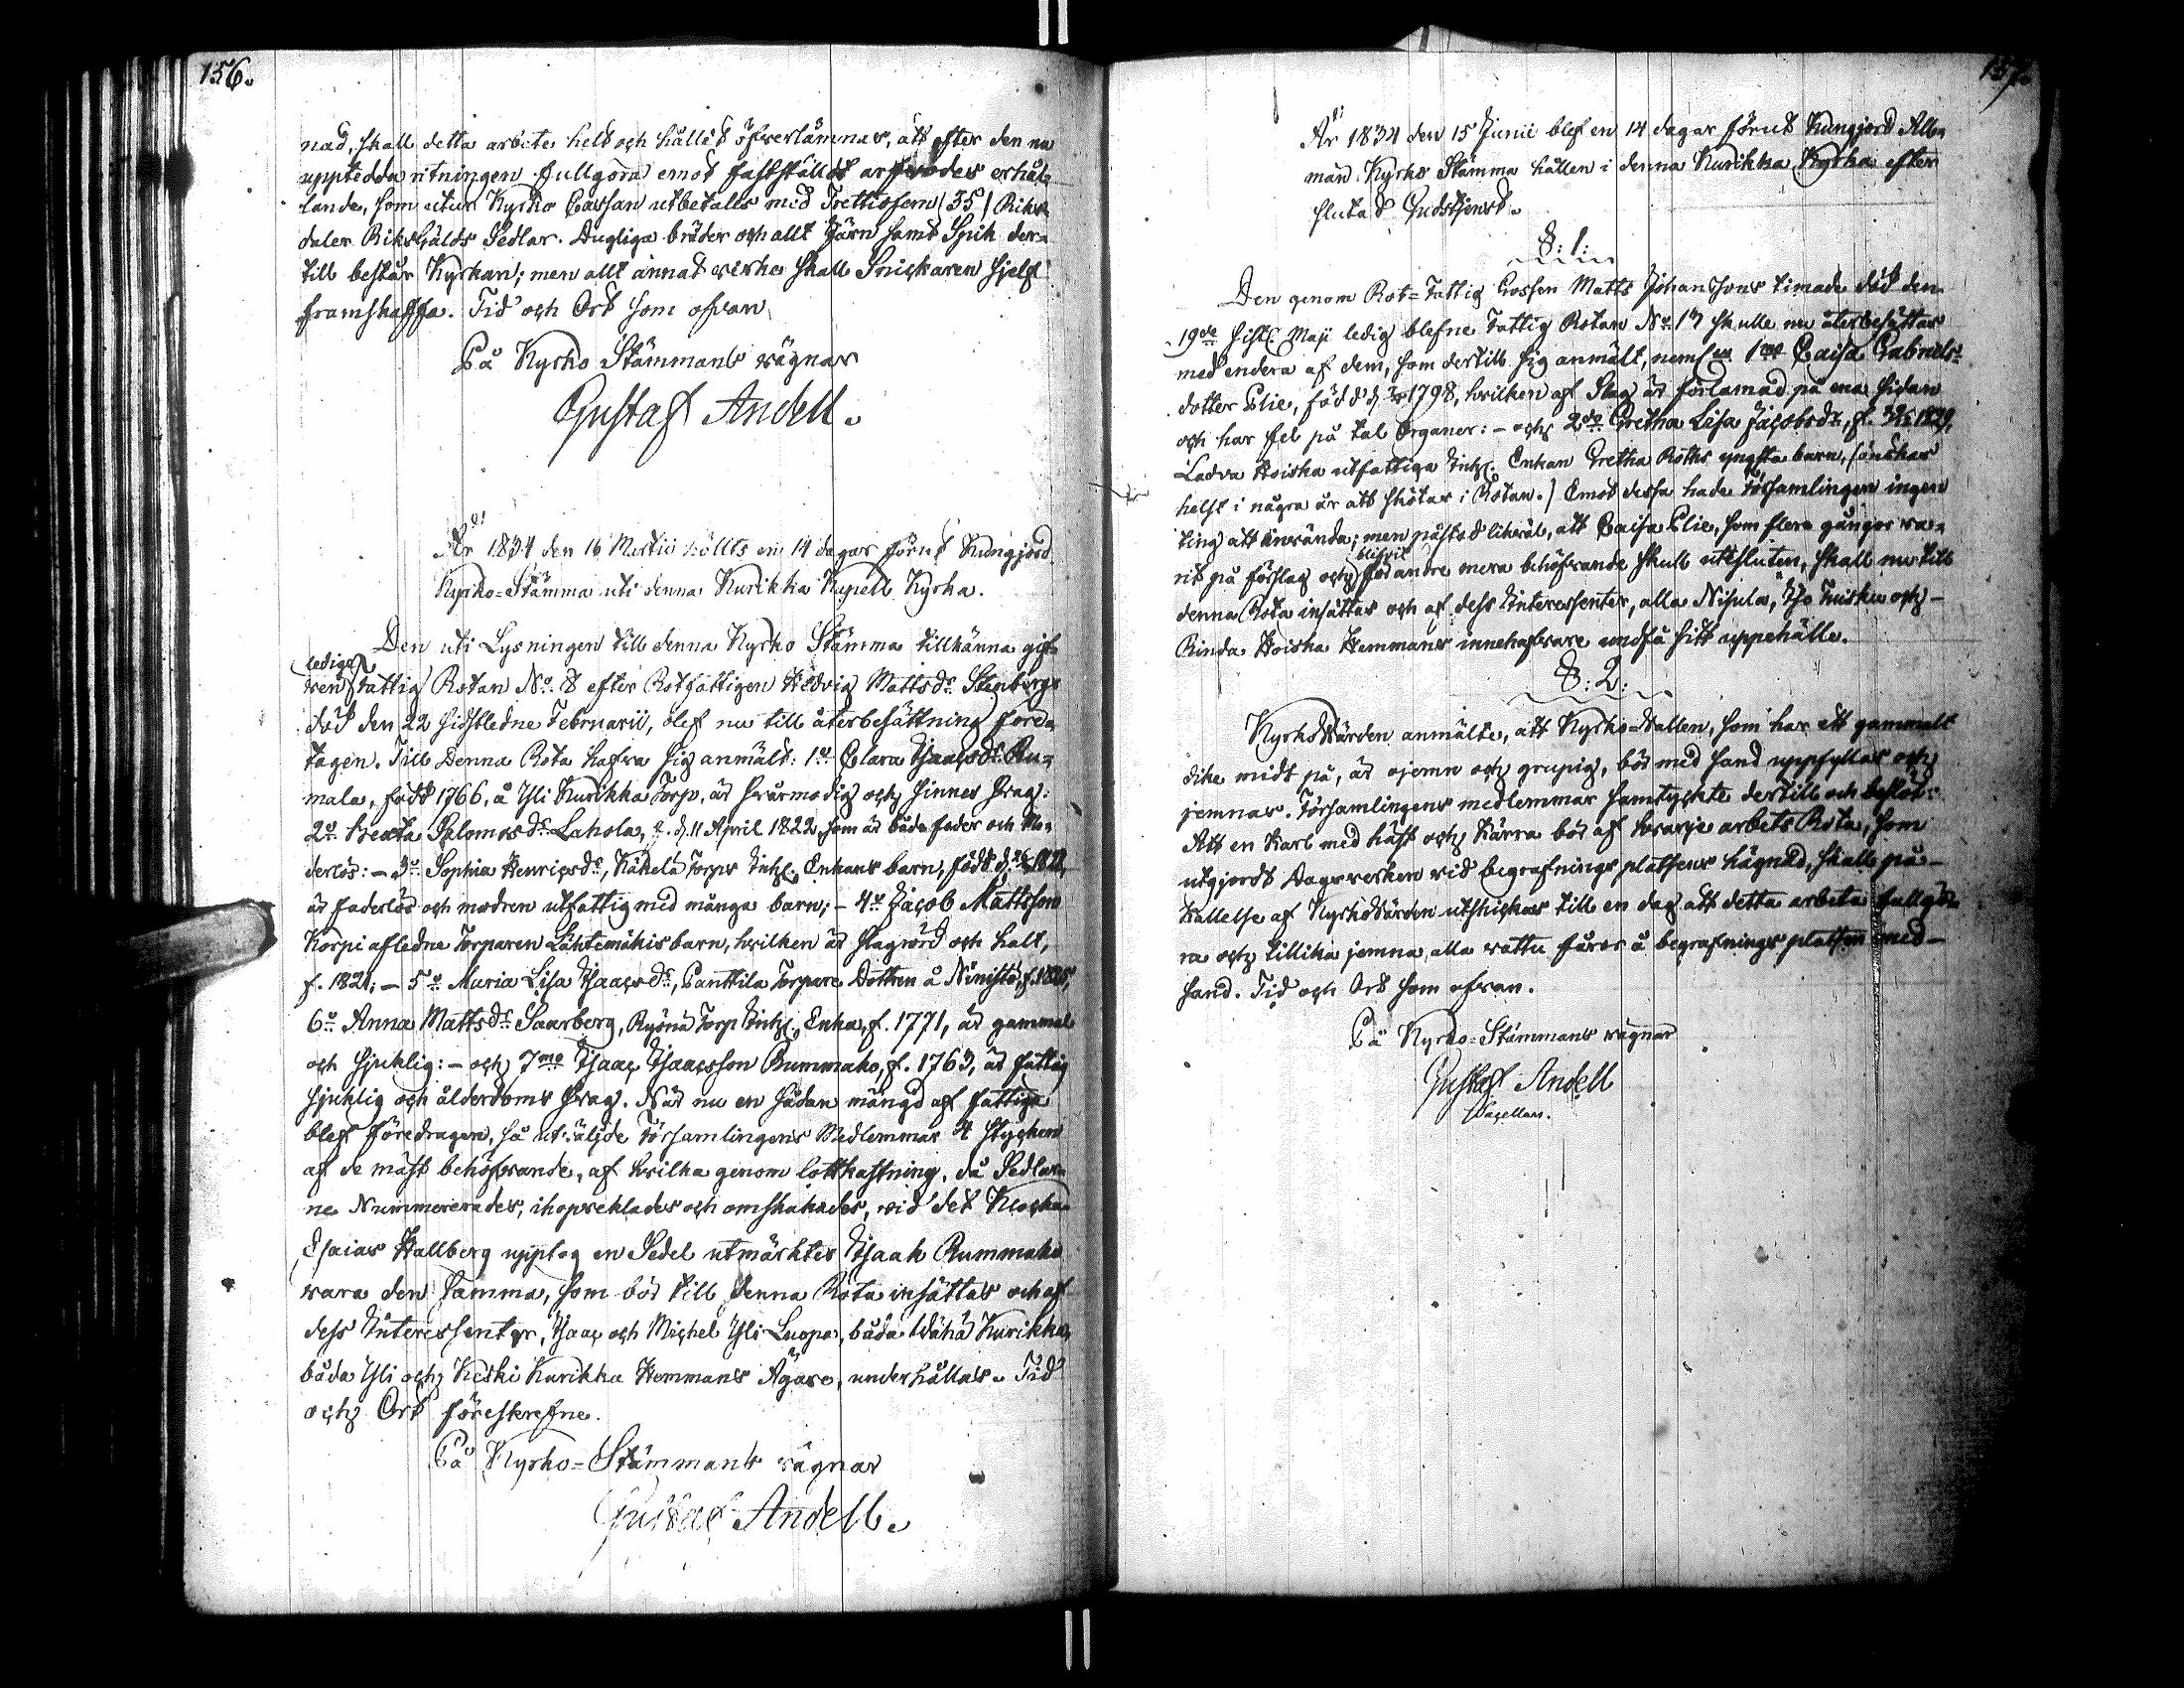 156.
nad, skall detta arbete helt och hållet öfverlämnas, att efter den nu
upptedda ritningen fullgöra emot fastställdt arfvodes erhål-
lande, som utur Kyrko Cassan utbetalts med Trettiofem (35) Riks-
daler RiksGälds Sedlar. Dugliga bräder och allt Järn samt Spik der-
till består Kyrkan; men allt annat virke skall Snickaren sjelf
framskaffa. Tid och Ort som ofvan
På Kyrko Stämmans vägnar
Gustaf Andell.
År 1834 den 16 Martii hölls en 14 dagar förut Kungjord
Kyrko-Stämma uti denna Kurikka Kapell Kyrka.
Den uti Lysningen till denna Kyrko Stämma tillkänna gif-
lediga
ven Fattig Rotan No. 8 efter Rotfattigen Hedvig Mattsdr. Stenbergs
död den 22 sidstledne Februarii, blef nu till återbesättning före-
tagen. Till Denna Rota hafva sig anmält: 1o Clara Isaacsdr.
mala, född 1766, å Yli Kurikka Torp, är svårmodig och sinnes svag:
2o Beata Salomonsdr. Lahola, f. d. 11 April 1822, som är både fader och Mo-
derlös: - 3o Sophia Henricsdr., Käkelä Torps Inhs. Enkans barn, född d.
är faderlös och modren utfattig med många barn; - 4o Jacob Mattsson
Korpi afledne Torparen Lähtemäkis barn, hvilken är slagrörd och halt,
f. 1821; - 5o Maria Lisa Isaacsdr., Panttila Torpare Dottren å Ninistö, f.
6o Anna Mattsdr. Saarberg, Torp Inhs. Enka, f. 1771, är gammal
och sjuklig: - och 7mo Isaac Isaacsson Rummako, f. 1763, är fattig
sjuklig och ålderdoms svag. När nu en sådan mängd af fattiga
blef föredragen, så utväljde Församlingens Medlemmar 4 stycken
af de mäst behöfvande, af hvilka genom lottkastning, då Sedlar-
ne Nummererades, ihopveklades och omskakades, vid det Klockar
Esaias Hallberg upptog en Sedel utmärktes Isaak Rummako
vara den Samma, som bör till denna Rota insättas och af
dess Interessenter, Isaac och Michel Yli Luopa, båda Wähä Kurikka,
båda Yli och Keski Kurikka Hemmans Ägare, underhållas. Tid
och Ort föreskrefne.
På Kyrko-Stämmans vägnar
Gustaf Andell.
157.
År 1834 den 15 Junii blef en 14 dagar förut Kungjord All-
män Kyrko Stämma hållen i denna Kurikka Kyrka efter
slutad Gudstjenst.
§: 1:
Den genom Rot-Fattig Gossen Matts Johanssons timade död den
19de sistl. Maji ledig blefne Fattig Rotan No. 13 skulle nu återbesättas
med endera af dem, som dertill sig anmält, neml.en 1mo Caisa Gabriels-
dotter Elie, född d. 1798, hvilken af Slag är förlamad på ena sidan
och har fel på tal Organer: - och 2do Gretha Lisa Jacobsdr., f.
Ladva Koiska utfattiga Inhs. Enkan Gretha Roths yngsta barn, (önskas
helst i några år att skötas i Rotan.) Emot dessa hade Församlingen ingen
ting att invända; men påstod likväl, att Caisa Elie, som flera gångor va-
blifvit
rit på förslag och för andre mera behöfvande skull utesluten, skall nu till
denna Rota insättas och af dess Interessenter, alla Nisula, Iso Tuisku och -
Rinda Koiska Hemmans innehafvare undfå sitt uppehälle.
§: 2:
KyrkoVärden anmälte, att Kyrko-Vallen, som har ett gammalt
dike midt på, är ojemn och gropig, bör med sand uppfyllas och
jemnas. Församlingens medlemmar samtyckte dertill och beslöt:
Att en Karl med häst och Kärra bör af hvarje arbets Rota, som
utgjordt Dagsverken vid begrafnings platsens hägnad, skall på -
Kallelse af KyrkoVärden utskickas till en dag att detta arbete fullgö-
ra och tillika jemna alla vattu fåror å begrafnings platsen med -
sand. Tid och Ort som ofvan.
På Kyrko-Stämmans vägnar
Gustaf Andell
Capellan.